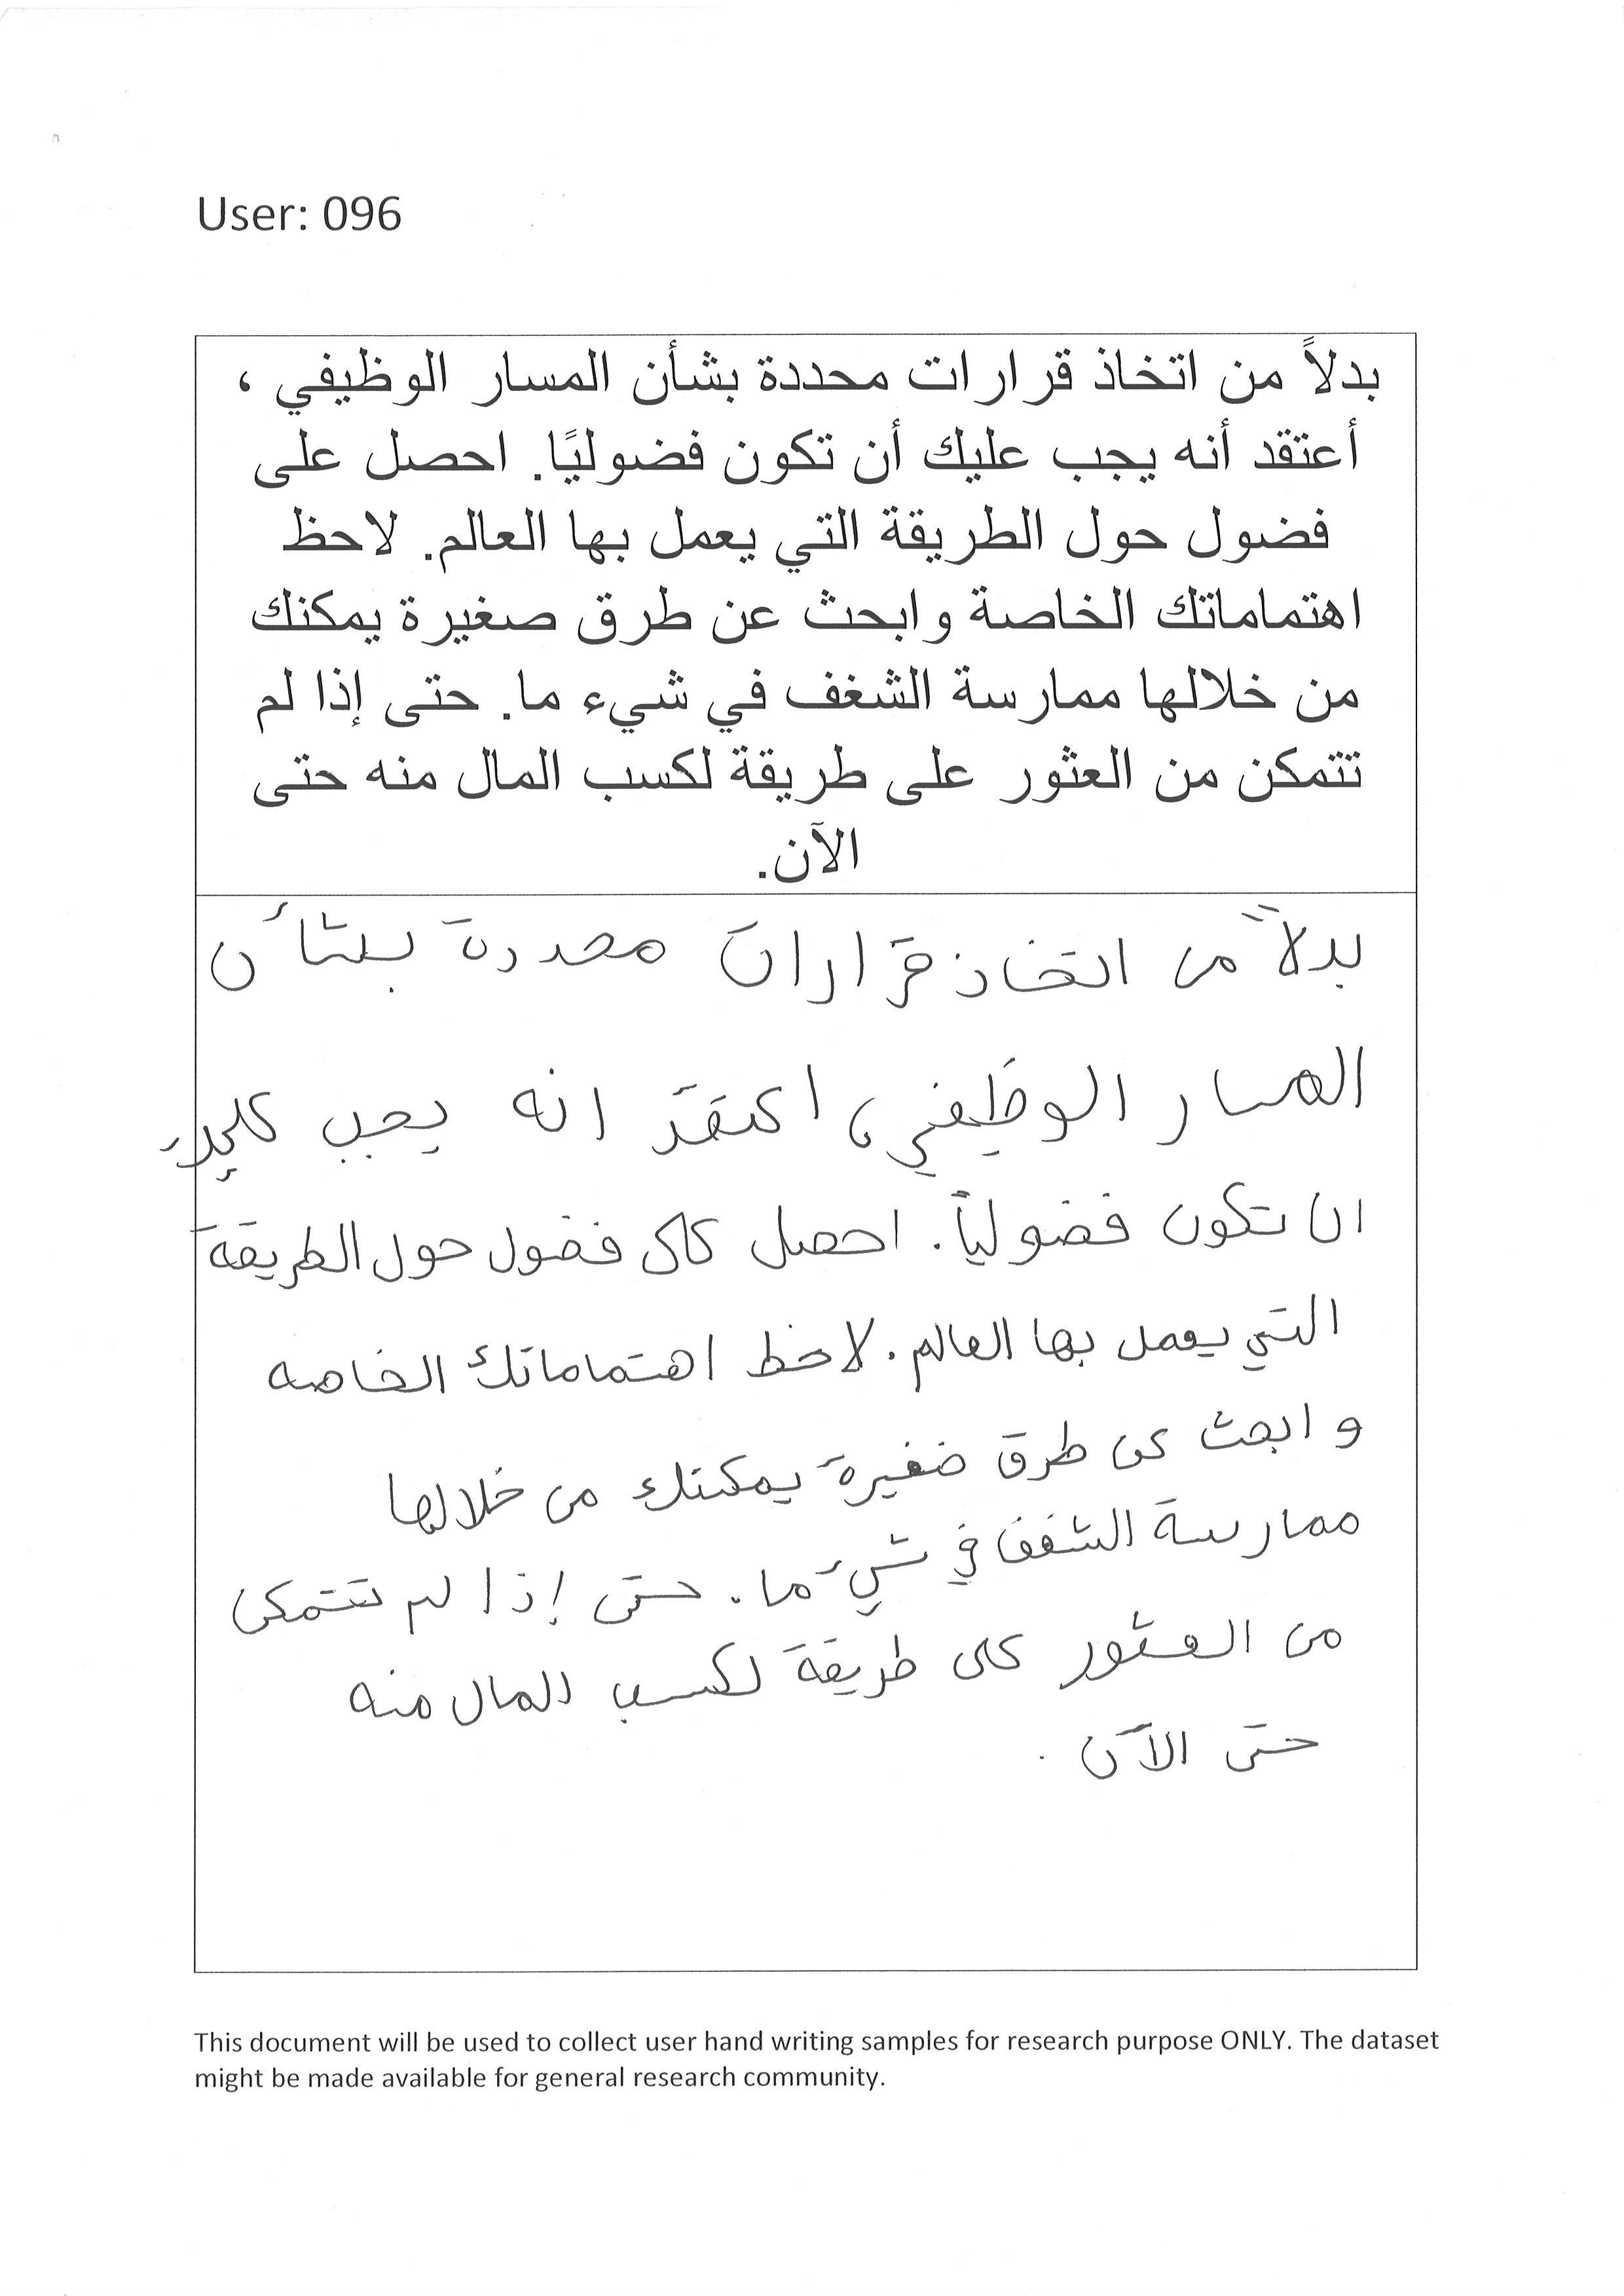 User: 096
بدلاً من اتخاذ قرارات محددة بشأن المسار الوظيفي ،
أعتقد أنه يجب عليك أن تكون فضوليًا. احصل على
فضول حول الطريقة التي يعمل بها العالم. لاحظ
اهتماماتك الخاصة وابحث عن طرق صغيرة يمكنك
من خلالها ممارسة الشغف في شيء ما. حتى إذا لم
تتمكن من العثور على طريقة لكسب المال منه حتى
الآن.
بدلاً من اتخاذ قرارات محددة بشأن
المسار الوظيفي، اعتقد انه يجب عليك
ان تكون فضولياً. احصل على فضول حول الطريقة
التي يعمل بها العالم. لاحظ اهتماماتك الخاصه
وابحث عن طرق ضغيرة يمكنك من خلالها
ممارسة الشغف في شيء ما. حتى إذا لم تتمكن
من العثور على طريقة لكسب المال منه
حتى الآن .
This document will be used to collect user hand writing samples for research purpose ONLY. The dataset
might be made available for general research community.